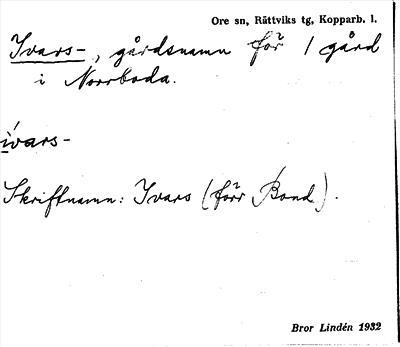 Ore sn, Rättviks tg, Kopparb. l.
Ivars-, gårdsnamn för 1 gård
i Norrboda.
ívars-
Skriftnamn: Ivars (förr Bond).
Bror Lindén 1932